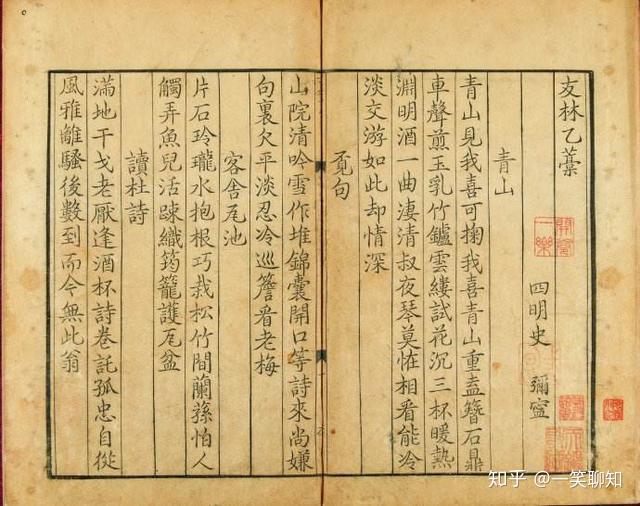 友林乙藁
四明史 彌寧
青山
青山見我喜可掬我喜青山重盍簪石鼎
車聲煎玉乳竹鑪雲縷試花沉三杯暖熱
淵明酒一曲淒清叔夜琴莫恠相看能冷
淡交游如此却情深
覔句
山院清吟雪作堆錦囊開口等詩來尚嫌
句裏欠平淡忍冷巡簷看老梅
客舍瓦池
片石玲瓏水抱根巧栽松竹間蘭蓀怕人
觸弄魚兒活踈織筠籠護瓦盆
讀杜詩
滿地干戈老厭逢酒杯詩卷託孤忠自從
風雅離騷後數到而今無此翁
知乎 @一笑聊知